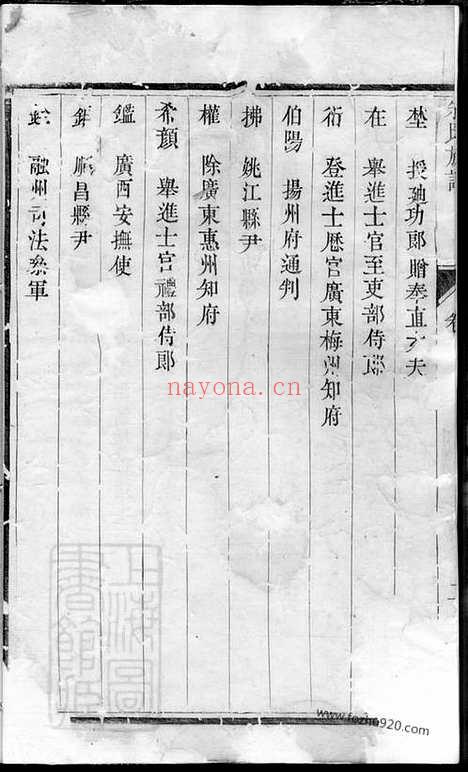 氏族譜
卷
埜 授迪功郎贈奉直大夫
在 舉進士官至吏部侍郎
衍 登進士歷官廣東梅州知府
伯陽 揚州府通判
拂 姚江縣尹
權 除廣東惠州知府
希顏 舉進士官禮部侍郎
鑑 廣西安撫使
順昌縣尹
融州司法叅軍
nayona.cn
上海圖書館
www.fozhu920.com